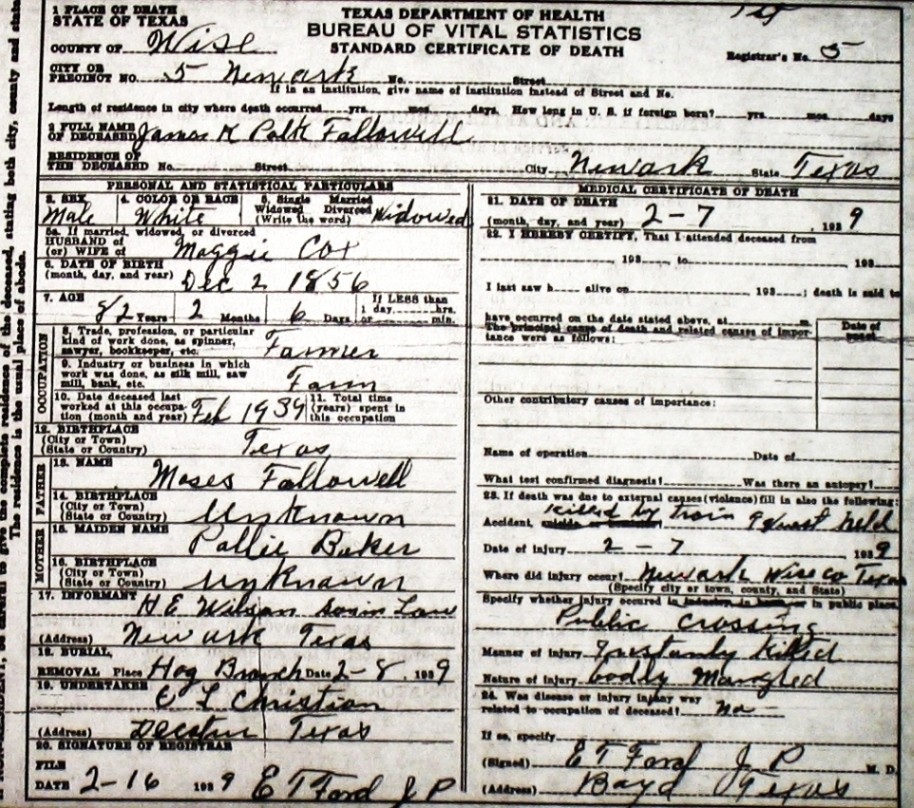 1 PLACE OF DEATH
STATE OF TEXAS
TEXAS DEPARTMENT OF HEALTH
BUREAU OF VITAL STATISTICS
STANDARD CERTIFICATE OF DEATH
COUNTY OF Wise
Registrar's No. 5
CITY OR
PRECINCT NO. 5 Newark No. Street
If in an institution, give name of institution instead of Street and No.
Length of residence in city where death occurred yrs. mos. days. How long in U. S. if foreign born? yrs. mos. days
2 FULL NAME
OF DECEASED James K Polk Fallowell
RESIDENCE OF
THE DECEASED No. Street City Newark State Texas
PERSONAL AND STATISTICAL PARTICULARS
3. SEX Male
4. COLOR OR RACE White
5. Single Married
Widowed Divorced
(Write the word) Widowed
5a. If married, widowed, or divorced
HUSBAND of
(or) WIFE of Maggie Cox
6. DATE OF BIRTH
(month, day, and year) Dec 2 1856
7. AGE
82 Years 2 Months 6 Days
If LESS than
1 day hrs.
or min.
OCCUPATION
8. Trade, profession, or particular
kind of work done, as spinner,
sawyer, bookkeeper, etc. Farmer
9. Industry or business in which
work was done, as silk mill, saw
mill, bank, etc. Farm
10. Date deceased last
worked at this occupa-
tion (month and year) Feb 1939
11. Total time
(years) spent in
this occupation
12. BIRTHPLACE
(City or Town)
(State or Country) Texas
FATHER
13. NAME
Moses Fallowell
14. BIRTHPLACE
(City or Town)
(State or Country) Unknown
MOTHER
15. MAIDEN NAME
Pallie Baker
16. BIRTHPLACE
(City or Town)
(State or Country) Unknown
17. INFORMANT
H E Wilson Son in Law
(Address) Newark Texas
18. BURIAL,
REMOVAL Place Hog Branch Date 2-8 1939
19. UNDERTAKER
C L Christian
(Address) Decatur Texas
20. SIGNATURE OF REGISTRAR
FILE
DATE 2-16 1939 E T Ford J P
MEDICAL CERTIFICATE OF DEATH
21. DATE OF DEATH
(month, day, and year) 2-7, 1939
22. I HEREBY CERTIFY, That I attended deceased from
193 , to 193
I last saw h alive on 193 ; death is said to
have occurred on the date stated above, at m.
The principal cause of death and related causes of impor-
tance were as follows:
Date of
onset
Other contributory causes of importance:
Name of operation Date of
What test confirmed diagnosis? Was there an autopsy?
23. If death was due to external causes (violence) fill in also the following:
killed by train Inquest held
Accident, suicide or homicide
Date of injury 2-7 1939
Where did injury occur? Newark Wise co Texas
(Specify city or town, county, and State)
Specify whether injury occured in industry, in home, or in public place.
Public Crossing
Manner of injury Instantly killed
Nature of injury bodly Mangled
24. Was disease or injury in any way
related to occupation of deceased? no
If so, specify
(Signed) E T Ford J P M. D.
(Address) Boyd Texas
The residence is the usual place of abode.